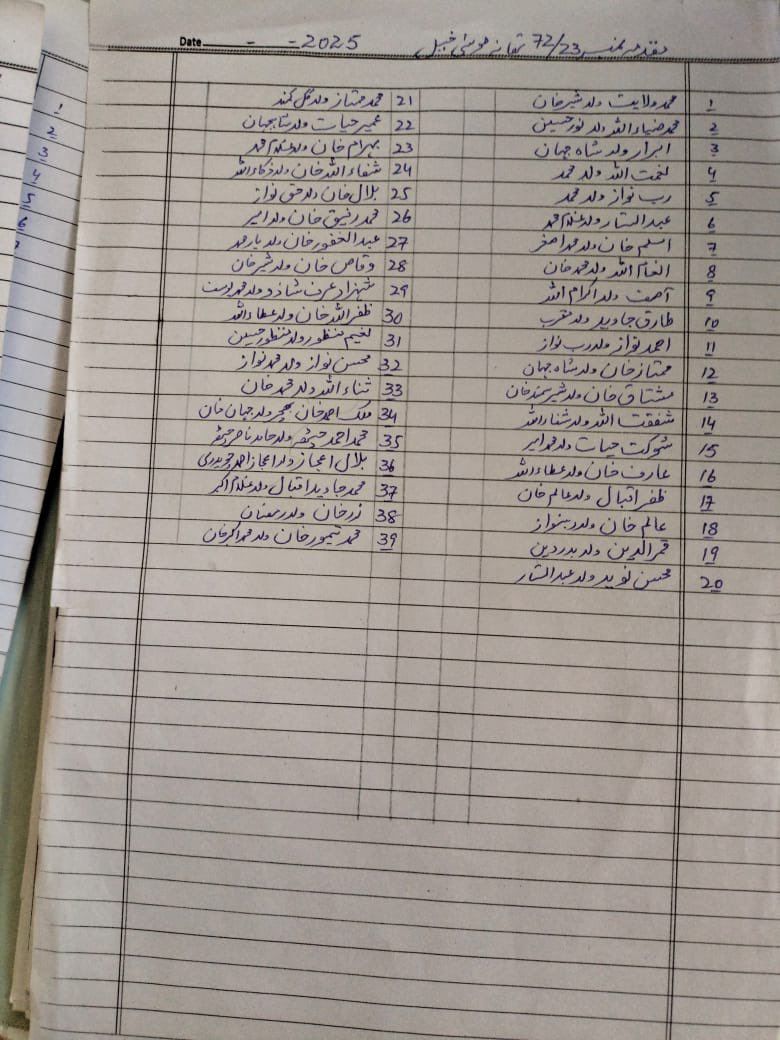 Date - - 2025
مقدمہ نمبر 72/23 تھانہ موسیٰ خیل
1 محمد ولایت ولد شیر خان
2 محمد ضیاء اللہ ولد نور حسین
3 ابرار ولد شاہ جہان
4 نعمت اللہ ولد محمد
5 رب نواز ولد محمد
6 عبدالستار ولد غلام محمد
7 اسلم خان ولد محمد اصغر
8 انعام اللہ ولد محمد خان
9 آصف ولد اکرام اللہ
10 طارق جاوید ولد مقرب
11 احمد نواز ولد رب نواز
12 ممتاز خان ولد شاہ جہان
13 مشتاق خان ولد شیر سمند خان
14 شفقت اللہ ولد ثناء اللہ
15 شوکت حیات ولد محمد امیر
16 عارف خان ولد عطاء اللہ
17 ظفر اقبال ولد عالم خان
18 عالم خان ولد ربنواز
19 قمر الدین ولد بدردین
20 محسن نوید ولد عبدالستار
21 محمد ممتاز ولد گل
22 عمیر حیات ولد شاہجہان
23 بہرام خان ولد غلام محمد
24 شفاء اللہ خان ولد ذکاء اللہ
25 بلال خان ولد حق نواز
26 محمد رفیق خان ولد امیر
27 عبدالغفور خان ولد یار محمد
28 وقاص خان ولد شیر خان
29 شہزاد عرف شادو ولد محمد دوست
30 ظفر اللہ خان ولد عطاء اللہ
31 نعیم منظور ولد منظور حسین
32 محسن نواز ولد محمد نواز
33 ثناء اللہ ولد محمد خان
34 ملک احمد خان بھچر ولد جہان خان
35 محمد احمد چٹھہ ولد حامد ناصر چٹھہ
36 بلال اعجاز ولد اعجاز احمد چوہدری
37 محمد جاوید اقبال ولد غلام اکبر
38 زر خان ولد رمضان
39 محمد تیمور خان ولد محمد اکبر خان
1
2
3
4
5
6